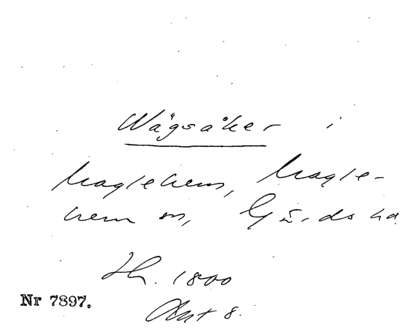 Wägsåker i
Maglehem, Magle-
hem sn, Gärds hd
Sk. 1800
Akt 8.
Nr 7897.